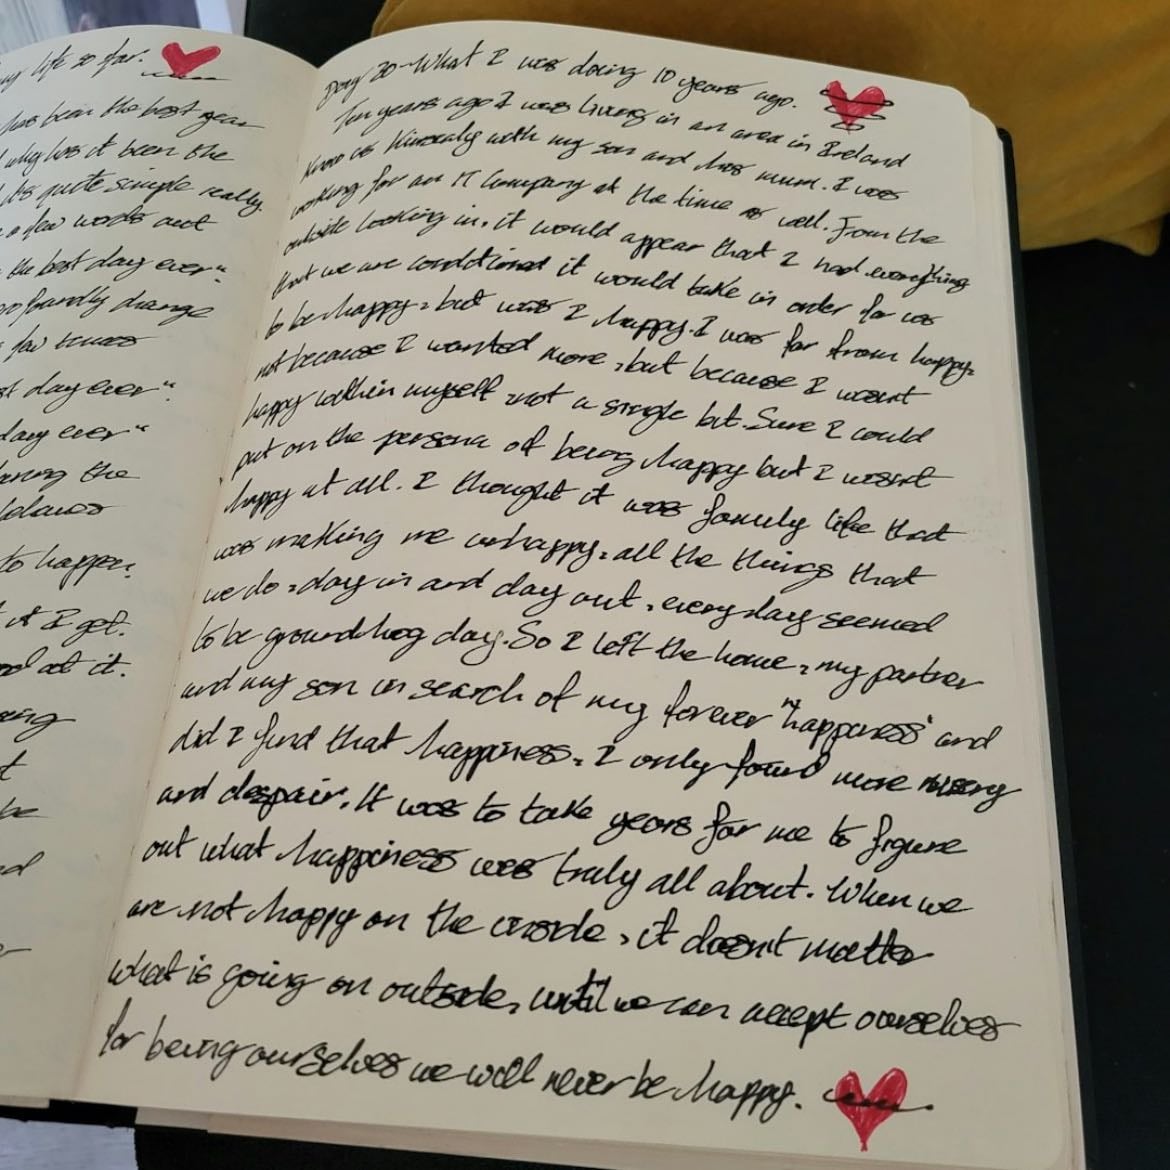 my life so far.
has been the best year
why has it been the
Its quite simple really.
a few words and
the best day ever"
profoundly change
few times
day ever".
day ever"
the
balance
to happen.
it I get.
at it.
be
Day 20 - What I was doing 10 years ago.
Ten years ago I was living in an area in Ireland
know as Kinsealy with my son and his mum. I was
working for an IT Company at the time as well. From the
outside looking in, it would appear that I had everything
that we are conditioned it would take in order for us
to be happy, but was I happy. I was far from happy,
not because I wanted more, but because I wasnt
happy within myself, not a single bit. Sure I could
put on the persona of being happy but I wasnt
happy at all. I thought it was family life that
was making me unhappy, all the things that
we do, day in and day out, every day seemed
to be groundhog day. So I left the home, my partner
and my son in search of my forever "happiness" and
did I find that happiness, I only found more misery
and despair. It was to take years for me to figure
out what happiness was truly all about. When we
are not happy on the inside, it doesnt matter
what is going on outside, until we can accept ourselves
for being ourselves we will never be happy.